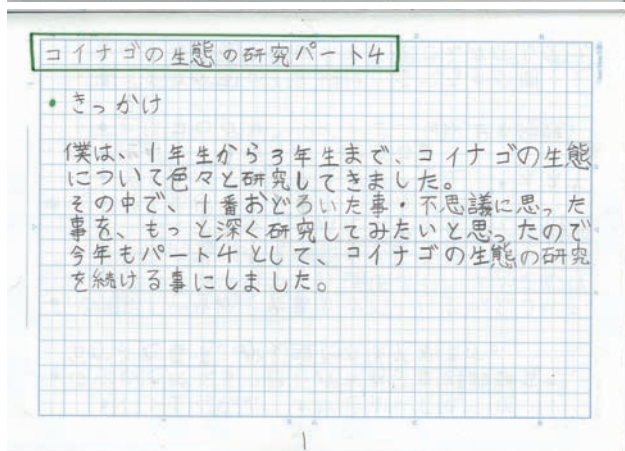 コイナゴの生態の研究パート4
・きっかけ
僕は、1年生から3年生まで、コイナゴの生態
について色々と研究してきました。
その中で、1番おどろいた事・不思議に思った
事を、もっと深く研究してみたいと思ったので
今年もパート4として、コイナゴの生態の研究
を続ける事にしました。
1